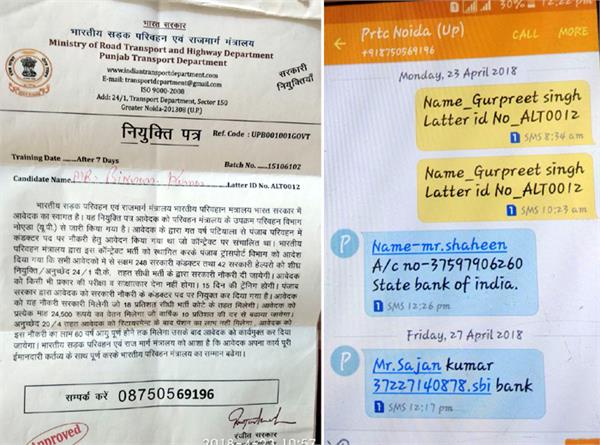 भारत सरकार
भारतीय सड़क परिवहन एवं राजमार्ग मंत्रालय
Ministry of Road Transport and Highway Department
Punjab Transport Department
www.indiantransportdepartment.com
E-mail: transportdepartment@gmail.com
ISO 9000-2008
Add: 24/1, Transport Department, Sector 150
Greater Noida-201308 (U.P.)
सरकारी
नियुक्तियाँ
नियुक्ति पत्र
Ref. Code : UPB001001GOVT
Training Date ......After 7 Days
Batch No. ......15106102
Candidate Name
Latter ID No. ALT0012
भारतीय सड़क परिवहन एवं राजमार्ग मंत्रालय भारतीय परिवहान मंत्रालय भारत सरकार में
आवेदक का स्वागत है। यह नियुक्ति पत्र आवेदक को परिवहन मंत्रालय के उपक्रम परिवहन विभाग
नोएडा (यू.पी.) से जारी किया गया है। आवेदक के द्वारा गत वर्ष पटियाला से पंजाब परिवहन में
कंडक्टर पद पर नौकरी हेतु आवेदन किया गया था जो कॉन्ट्रेक्ट पर संचालित था। भारतीय
परिवहन मंत्रालय द्वारा इस कॉन्ट्रेक्ट भर्ती को स्थागित करके पंजाब ट्रांसपोर्ट विभाग को आदेश
दिया गया कि सभी आवेदकों में से रकम 248 सरकारी कंडक्टर तथा 42 सरकारी हेल्परो को शीघ्र
नियुक्ति/अनुच्छेद 24/1 वी.के. तहत सीधी भर्ती के द्वारा सरकारी नौकरी दी जायेगी। आवेदक
को किसी भी प्रकार की परीक्षा व साक्षात्कार देना नहीं होगा। 15 दिन की ट्रेनिंग होगी। पंजाब
सरकार द्वारा आवेदक को सरकारी नौकरी के कंडक्टर पद पर नियुक्त कर दिया गया है। आवेदक
को यह नौकरी सरकारी मिलेगी जो 18 प्रतिशत सीधी भर्ती कोटे से तहत होगी। आवेदक को
प्रत्येक माह 24,500 रूपये का वेतन मिलेगा जो वार्षिक 10 प्रतिशत की दर से बढाया जायेगा।
अनुच्छेद 20/4 तहत आवेदक को रिटायरमेन्ट के बाद पेंशन का लाभ नहीं मिलेगा। आवेदक को
इस नौकरी का लाभ 60 वर्ष आयु पूर्ण होने तक मिलेगा उसके बाद आवेदक को कार्यमुक्त कर दिया
जायेगा। भारतीय सड़क परिवहन एवं राज मार्ग मंत्रालय को आशा है कि आवेदक अपना कार्य पूरी
ईमानदारी कर्तव्य के साथ पूर्ण करके परिवहन मंत्रालय का सम्मान बढेगा।
सम्पर्क करें 08750569196
Approved
30% 12:22 p.m.
Prtc Noida (Up)
+918750569196
CALL MORE
Monday, 23 April 2018
Name_Gurpreet singh
Latter id No_ALT0012
1 SMS 8:34 am
Name_Gurpreet singh
Latter id No_ALT0012
1 SMS 10:23 am
P
Name-mr.shaheen
A/c no-37597906260
State bank of india.
1 SMS 12:26 pm
Friday, 27 April 2018
P
Mr.Sajan kumar
37227140878.sbi bank
1 SMS 12:17 pm